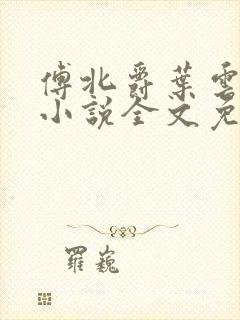 傅北爵葉雲
小說全文免
羅巍